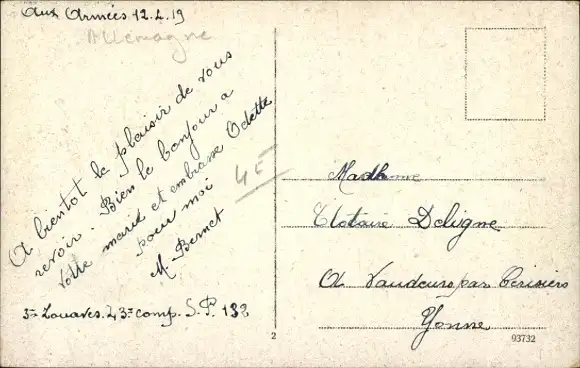 Aux Armées 12.4.19
Allemagne
A bientot le plaisir de vous
revoir. Bien le bonjour a
votre mari et embrasse Odette
pour moi
M Bernet
3e Zouaves. 43e comp. S.P. 132
4E
Madame
Notaire Deligne
A Vaudeurs par Cerisiers
Yonne
2
93732